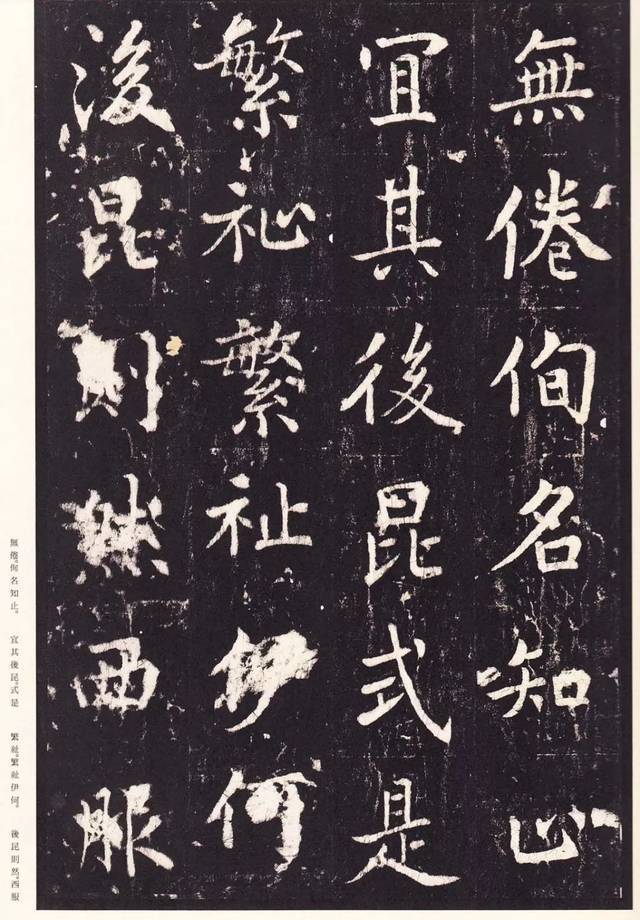 無倦徇名知止
宜其後昆式是
繁祉繁祉伊何
後昆則然西服
無倦。徇名知止。 宜其後昆。式是 繁祉。繁祉伊何。 後昆則然。西服